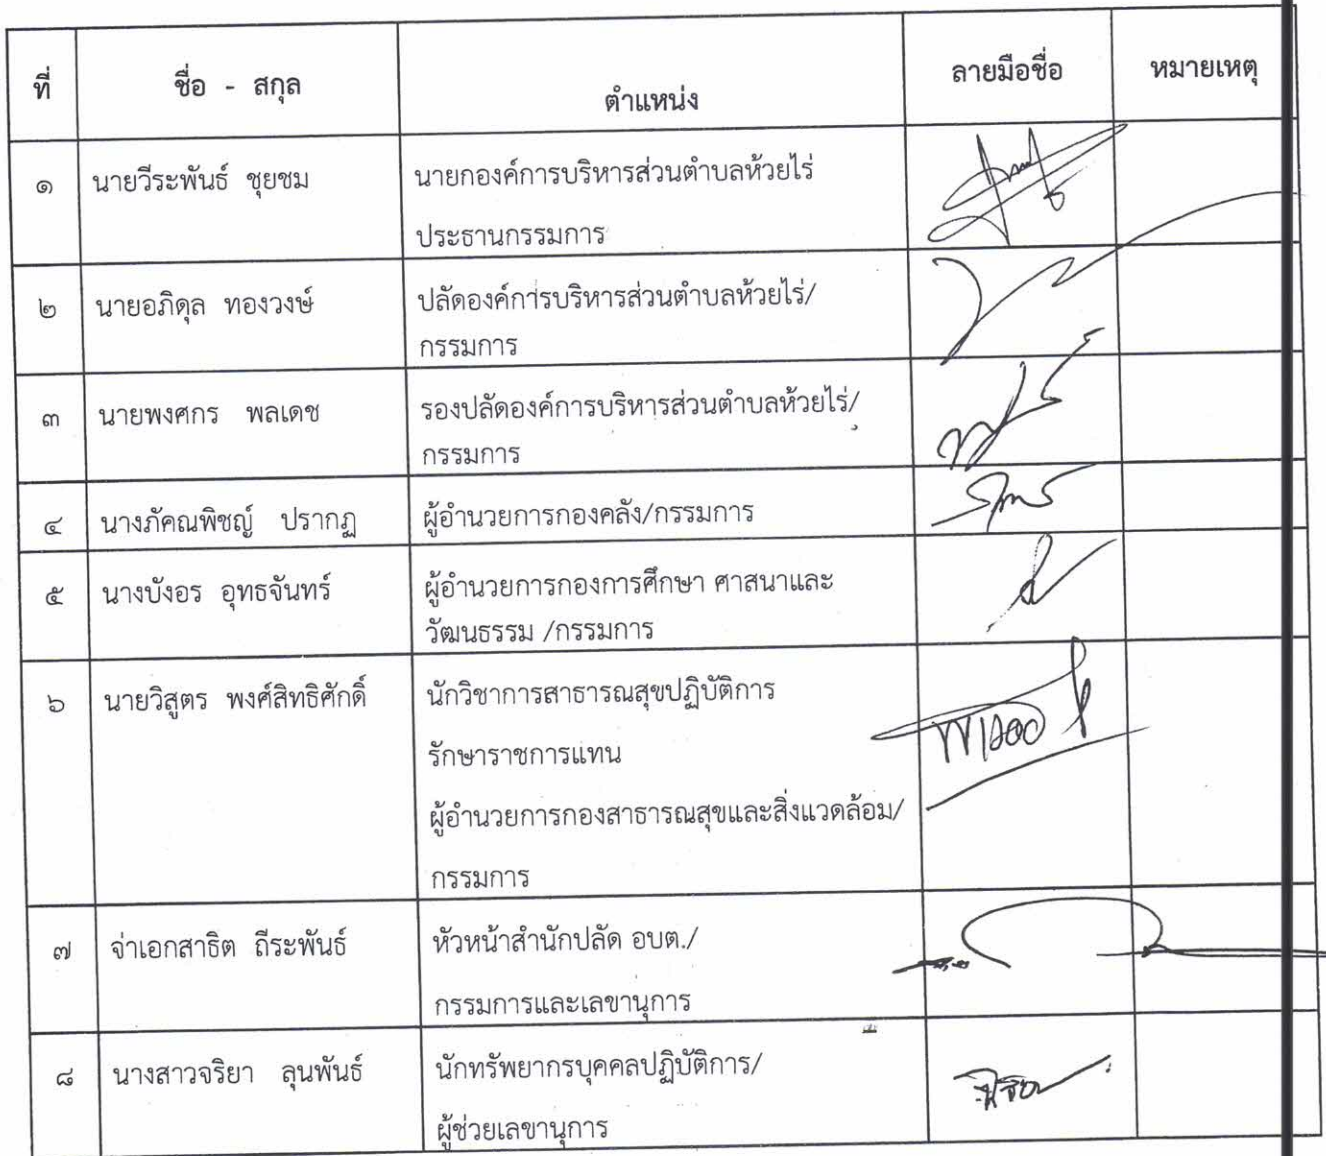 ที่ ชื่อ - สกุล ตำแหน่ง ลายมือชื่อ หมายเหตุ
๑ นายวีระพันธ์ ชุยชม นายกองค์การบริหารส่วนตำบลห้วยไร่
ประธานกรรมการ
๒ นายอภิดุล ทองวงษ์ ปลัดองค์การบริหารส่วนตำบลห้วยไร่/
กรรมการ
๓ นายพงศกร พลเดช รองปลัดองค์การบริหารส่วนตำบลห้วยไร่/
กรรมการ
๔ นางภัคณพิชญ์ ปรากฏ ผู้อำนวยการกองคลัง/กรรมการ
๕ นางบังอร อุทธจันทร์ ผู้อำนวยการกองการศึกษา ศาสนาและ
วัฒนธรรม /กรรมการ
๖ นายวิสูตร พงศ์สิทธิศักดิ์ นักวิชาการสาธารณสุขปฏิบัติการ
รักษาราชการแทน
ผู้อำนวยการกองสาธารณสุขและสิ่งแวดล้อม/
กรรมการ
๗ จ่าเอกสาธิต ถีระพันธ์ หัวหน้าสำนักปลัด อบต./
กรรมการและเลขานุการ
๘ นางสาวจริยา ลุนพันธ์ นักทรัพยากรบุคคลปฏิบัติการ/
ผู้ช่วยเลขานุการ